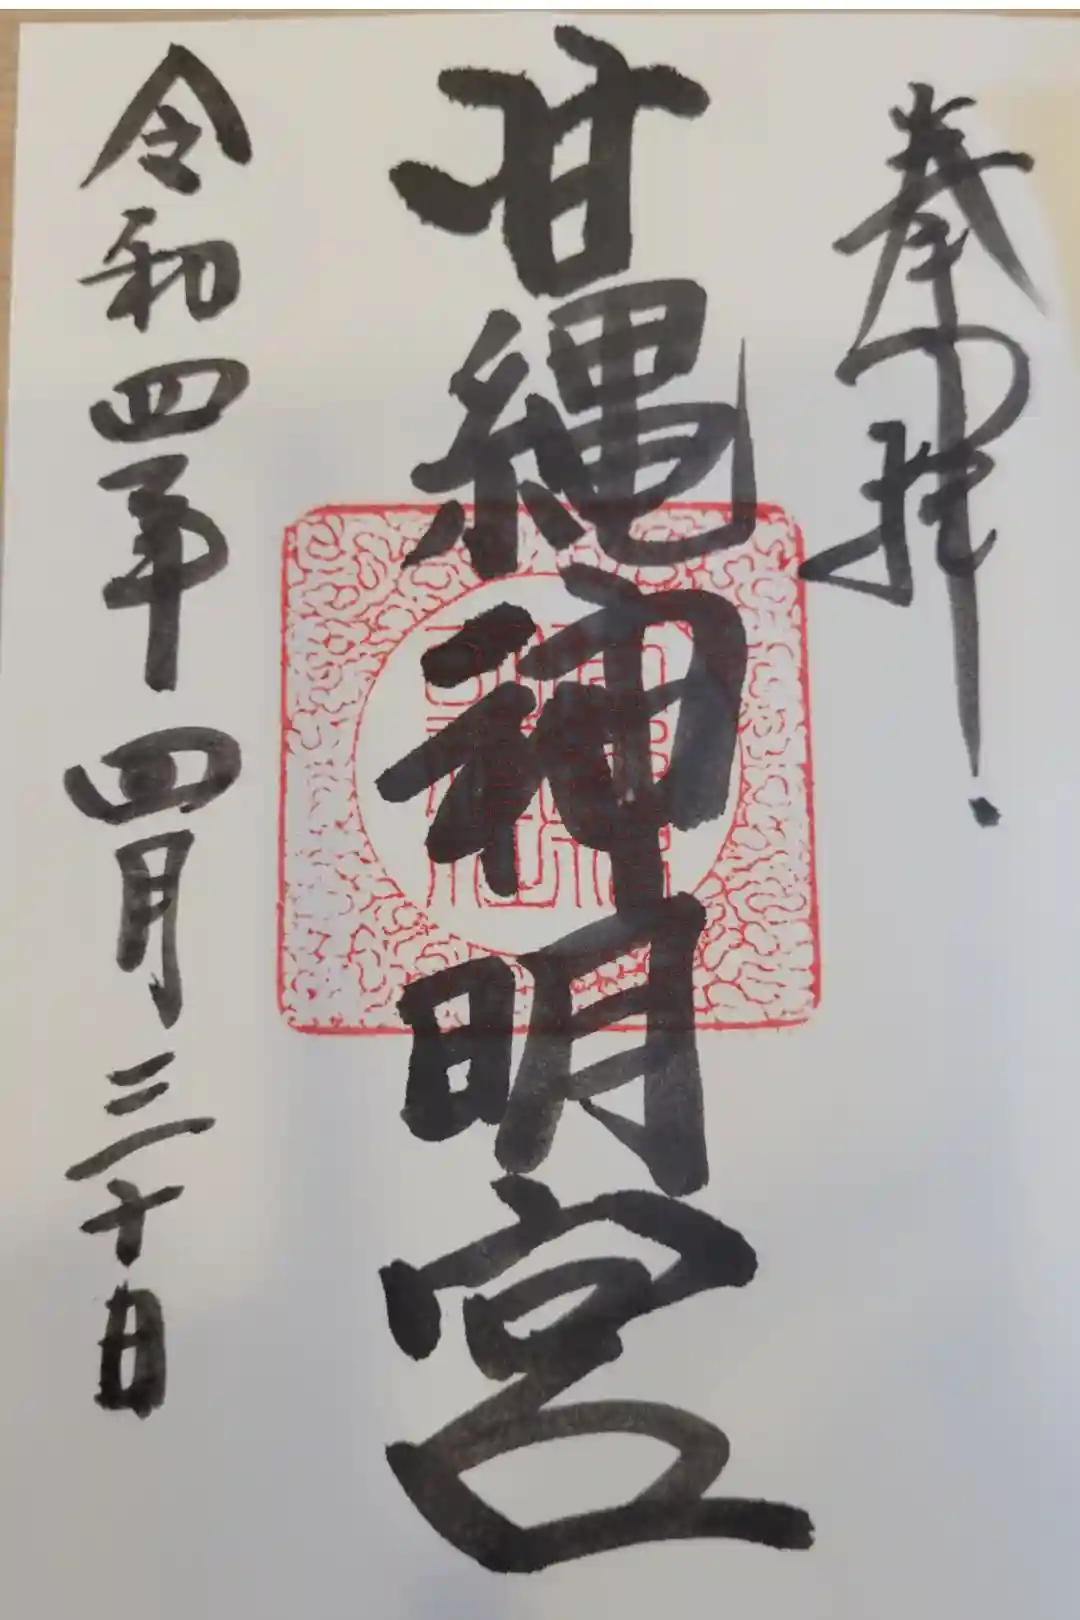 奉拝
甘縄神明宮
令和四年 四月 三十日